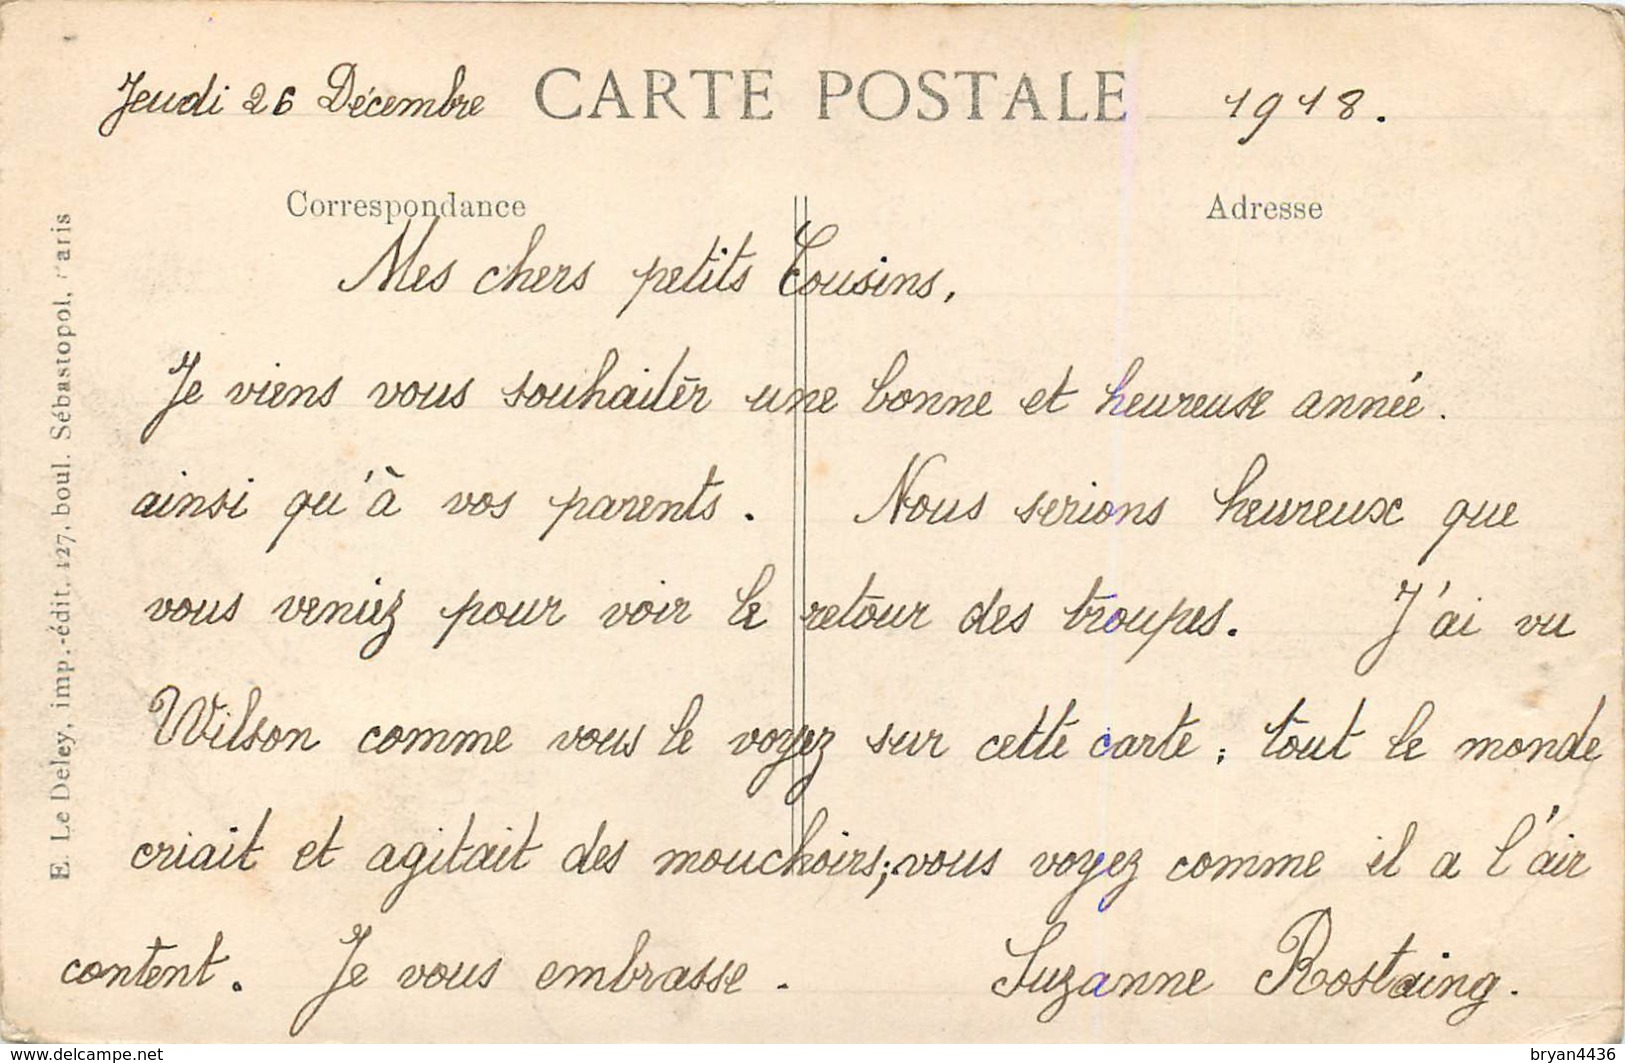 Jeudi 26 Décembre CARTE POSTALE 1918.
Correspondance Adresse
Mes chers petits Cousins,
Je viens vous souhaiter une bonne et heureuse année.
ainsi qu'à vos parents. Nous serions heureux que
vous veniez pour voir le retour des troupes. J'ai vu
Wilson comme vous le voyez sur cette carte; tout le monde
criait et agitait des mouchoirs; vous voyez comme il a l'air
content. Je vous embrasse. Suzanne Rostaing.
E. Le Deley, imp.-édit. 127, boul. Sébastopol, Paris
www.delcampe.net bryan4436